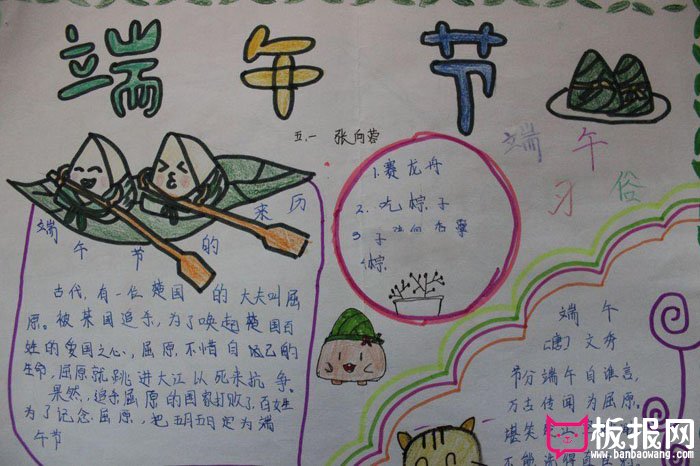 端午节
五.一 张向蓉
端午
习俗
1.赛龙舟
2.吃粽子
3
粽.
端午节的来历
古代,有一位楚国的大夫叫屈
原。被某国追杀,为了唤起楚国百
姓的爱国之心,屈原不惜自己的
生命,屈原就跳进大江以死来抗争。
果然,追杀屈原的国家打败了,百姓
为了记念屈原,把五月五日定为端
午节
端午
(唐) 文秀
节分端午自谁言,
万古传闻为屈原。
堪笑
不能
板报网
www.banbaowang.com